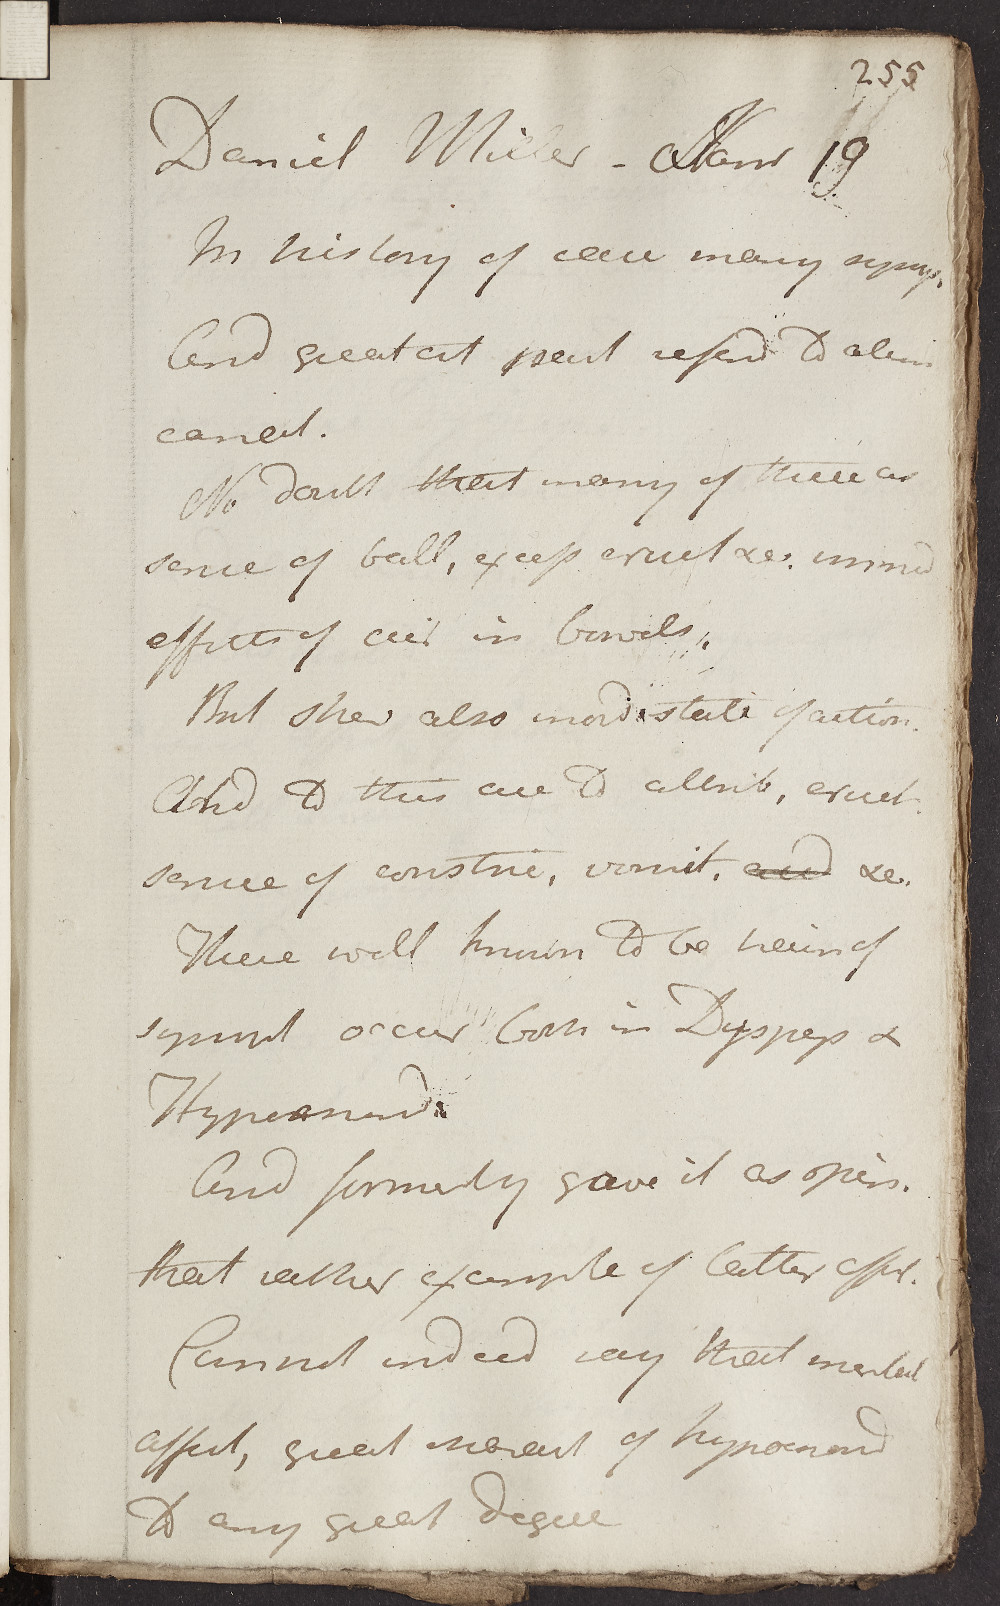 255
Daniel Miller - 19
In history of case many symp.
And greatest part referd to alim
canal.
No doubt that many of these as
sense of ball, except eruct &c. immed
effects of air in bowels,
But shew also inord. state of action.
And to this are to attrib, eruct.
sense of constric, vomit. and &c.
These well known to be
sympt occur both in Dyspeps &
Hypochond.
And formerly gave it as opin.
that rather example of latter affect.
Cannot indeed say that mental
affect, great of hypochond
to any great degree